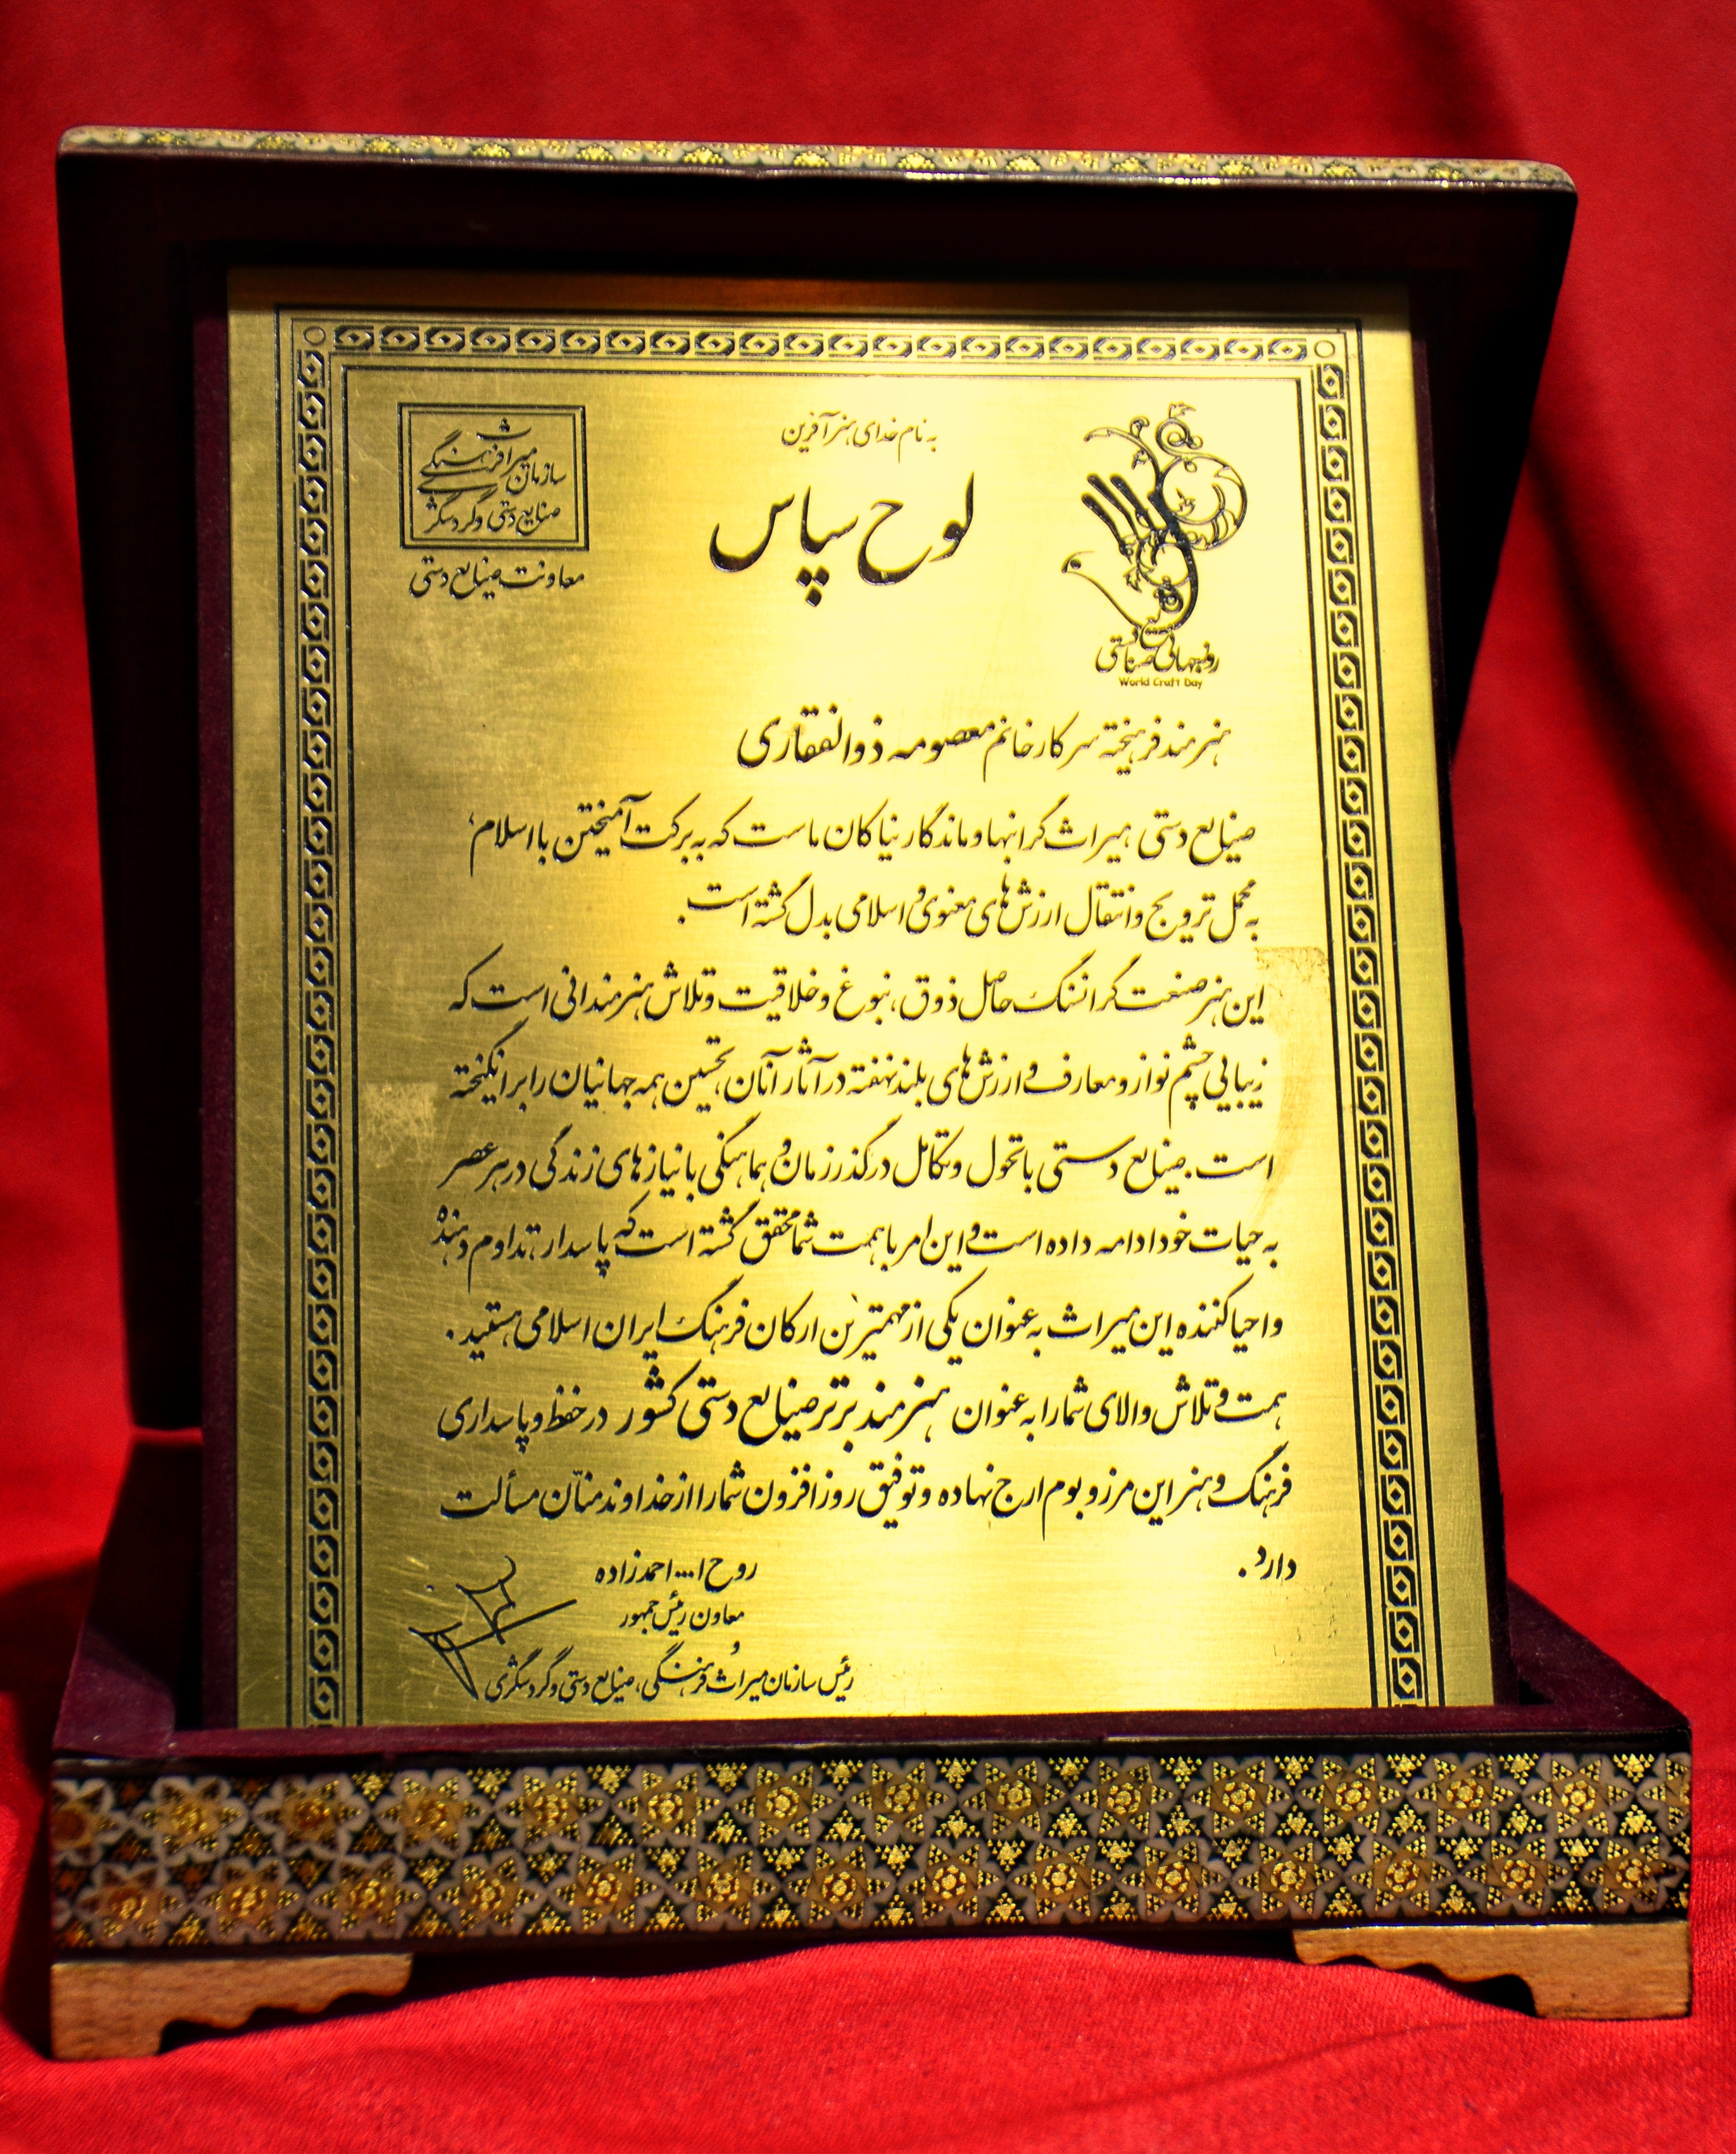 به نام خدای هنرآفرین
لوح سپاس
سازمان میراث فرهنگی
صنایع دستی و گردشگری
معاونت صنایع دستی
روز جهانی صنایع دستی
World Craft Day
هنرمند فرهیخته سرکار خانم معصومه ذوالفقاری
صنایع دستی میراث گرانبها و ماندگار نیاکان ماست که به برکت آمیختن با اسلام،
به محمل ترویج و انتقال ارزش‌های معنوی و اسلامی بدل گشته است.
این هنر صنعت گرانسنگ حاصل ذوق، نبوغ و خلاقیت و تلاش هنرمندانی است که
زیبایی چشم نواز و معارف و ارزش‌های بلند نهفته در آثار آنان، تحسین همه جهانیان را برانگیخته
است. صنایع دستی با تحول و تکامل در گذر زمان و هماهنگی با نیازهای زندگی در هر عصر
به حیات خود ادامه داده است و این امر با همت شما محقق گشته است که پاسدار، تداوم دهنده
و احیا کننده این میراث به عنوان یکی از مهمترین ارکان فرهنگ ایران اسلامی هستید.
همت و تلاش والای شما را به عنوان هنرمند برتر صنایع دستی کشور در حفظ و پاسداری
فرهنگ و هنر این مرز و بوم ارج نهاده و توفیق روز افزون شما را از خداوند منّان مسألت
دارد.
روح ا... احمدزاده
معاون رئیس جمهور
و
رئیس سازمان میراث فرهنگی، صنایع دستی و گردشگری